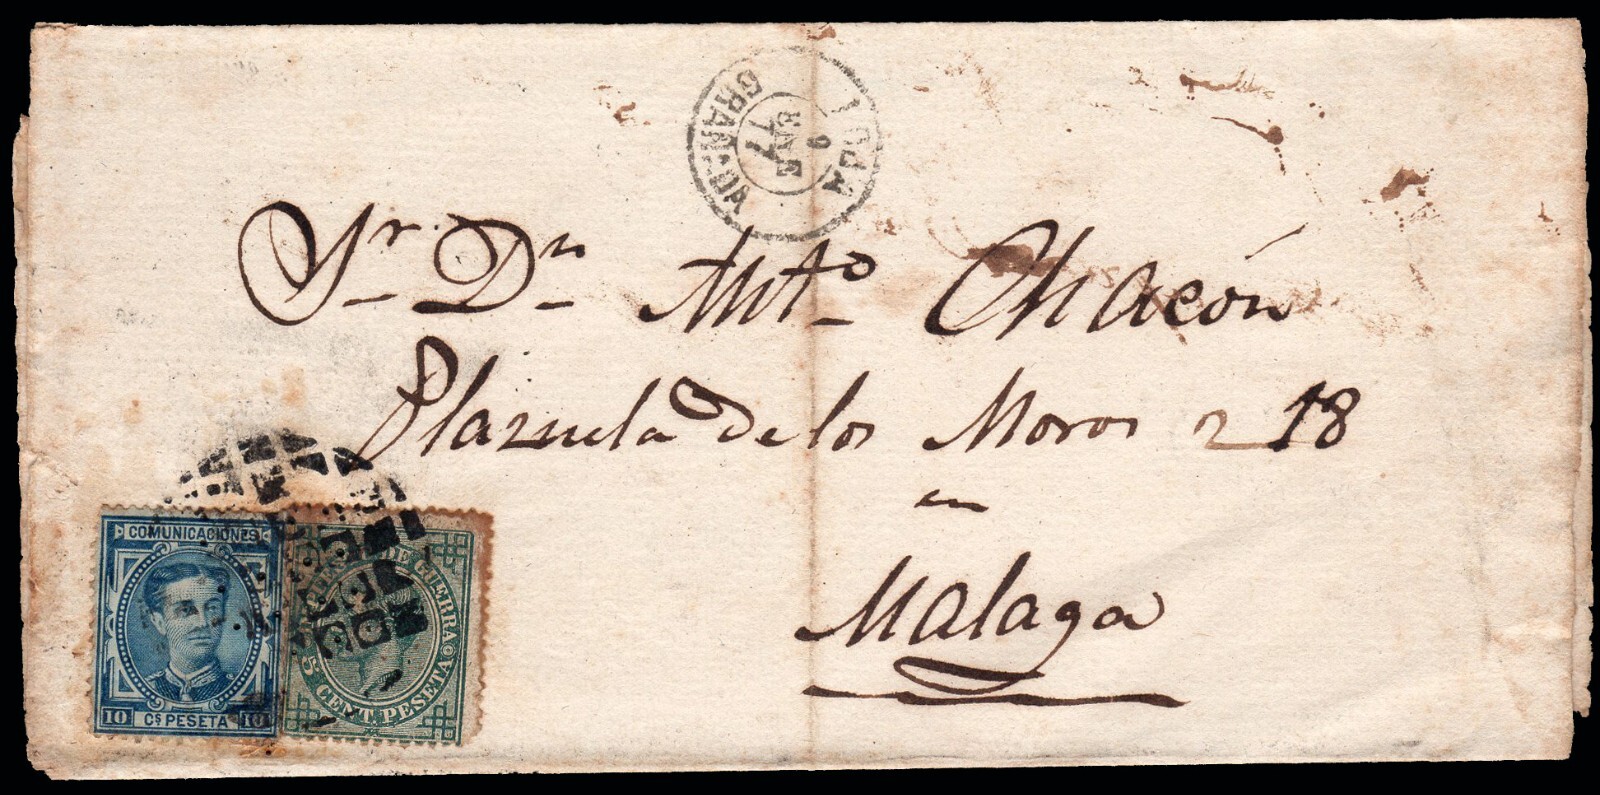 LOJA
6
ENE
77
GRANADA
Sr. Dn. Ant.º Chacón
Plazuela de los Moros n 18
en
Malaga
COMUNICACIONES
10 Cs PESETA 10
DE GUERRA
5 CENT. PESETA